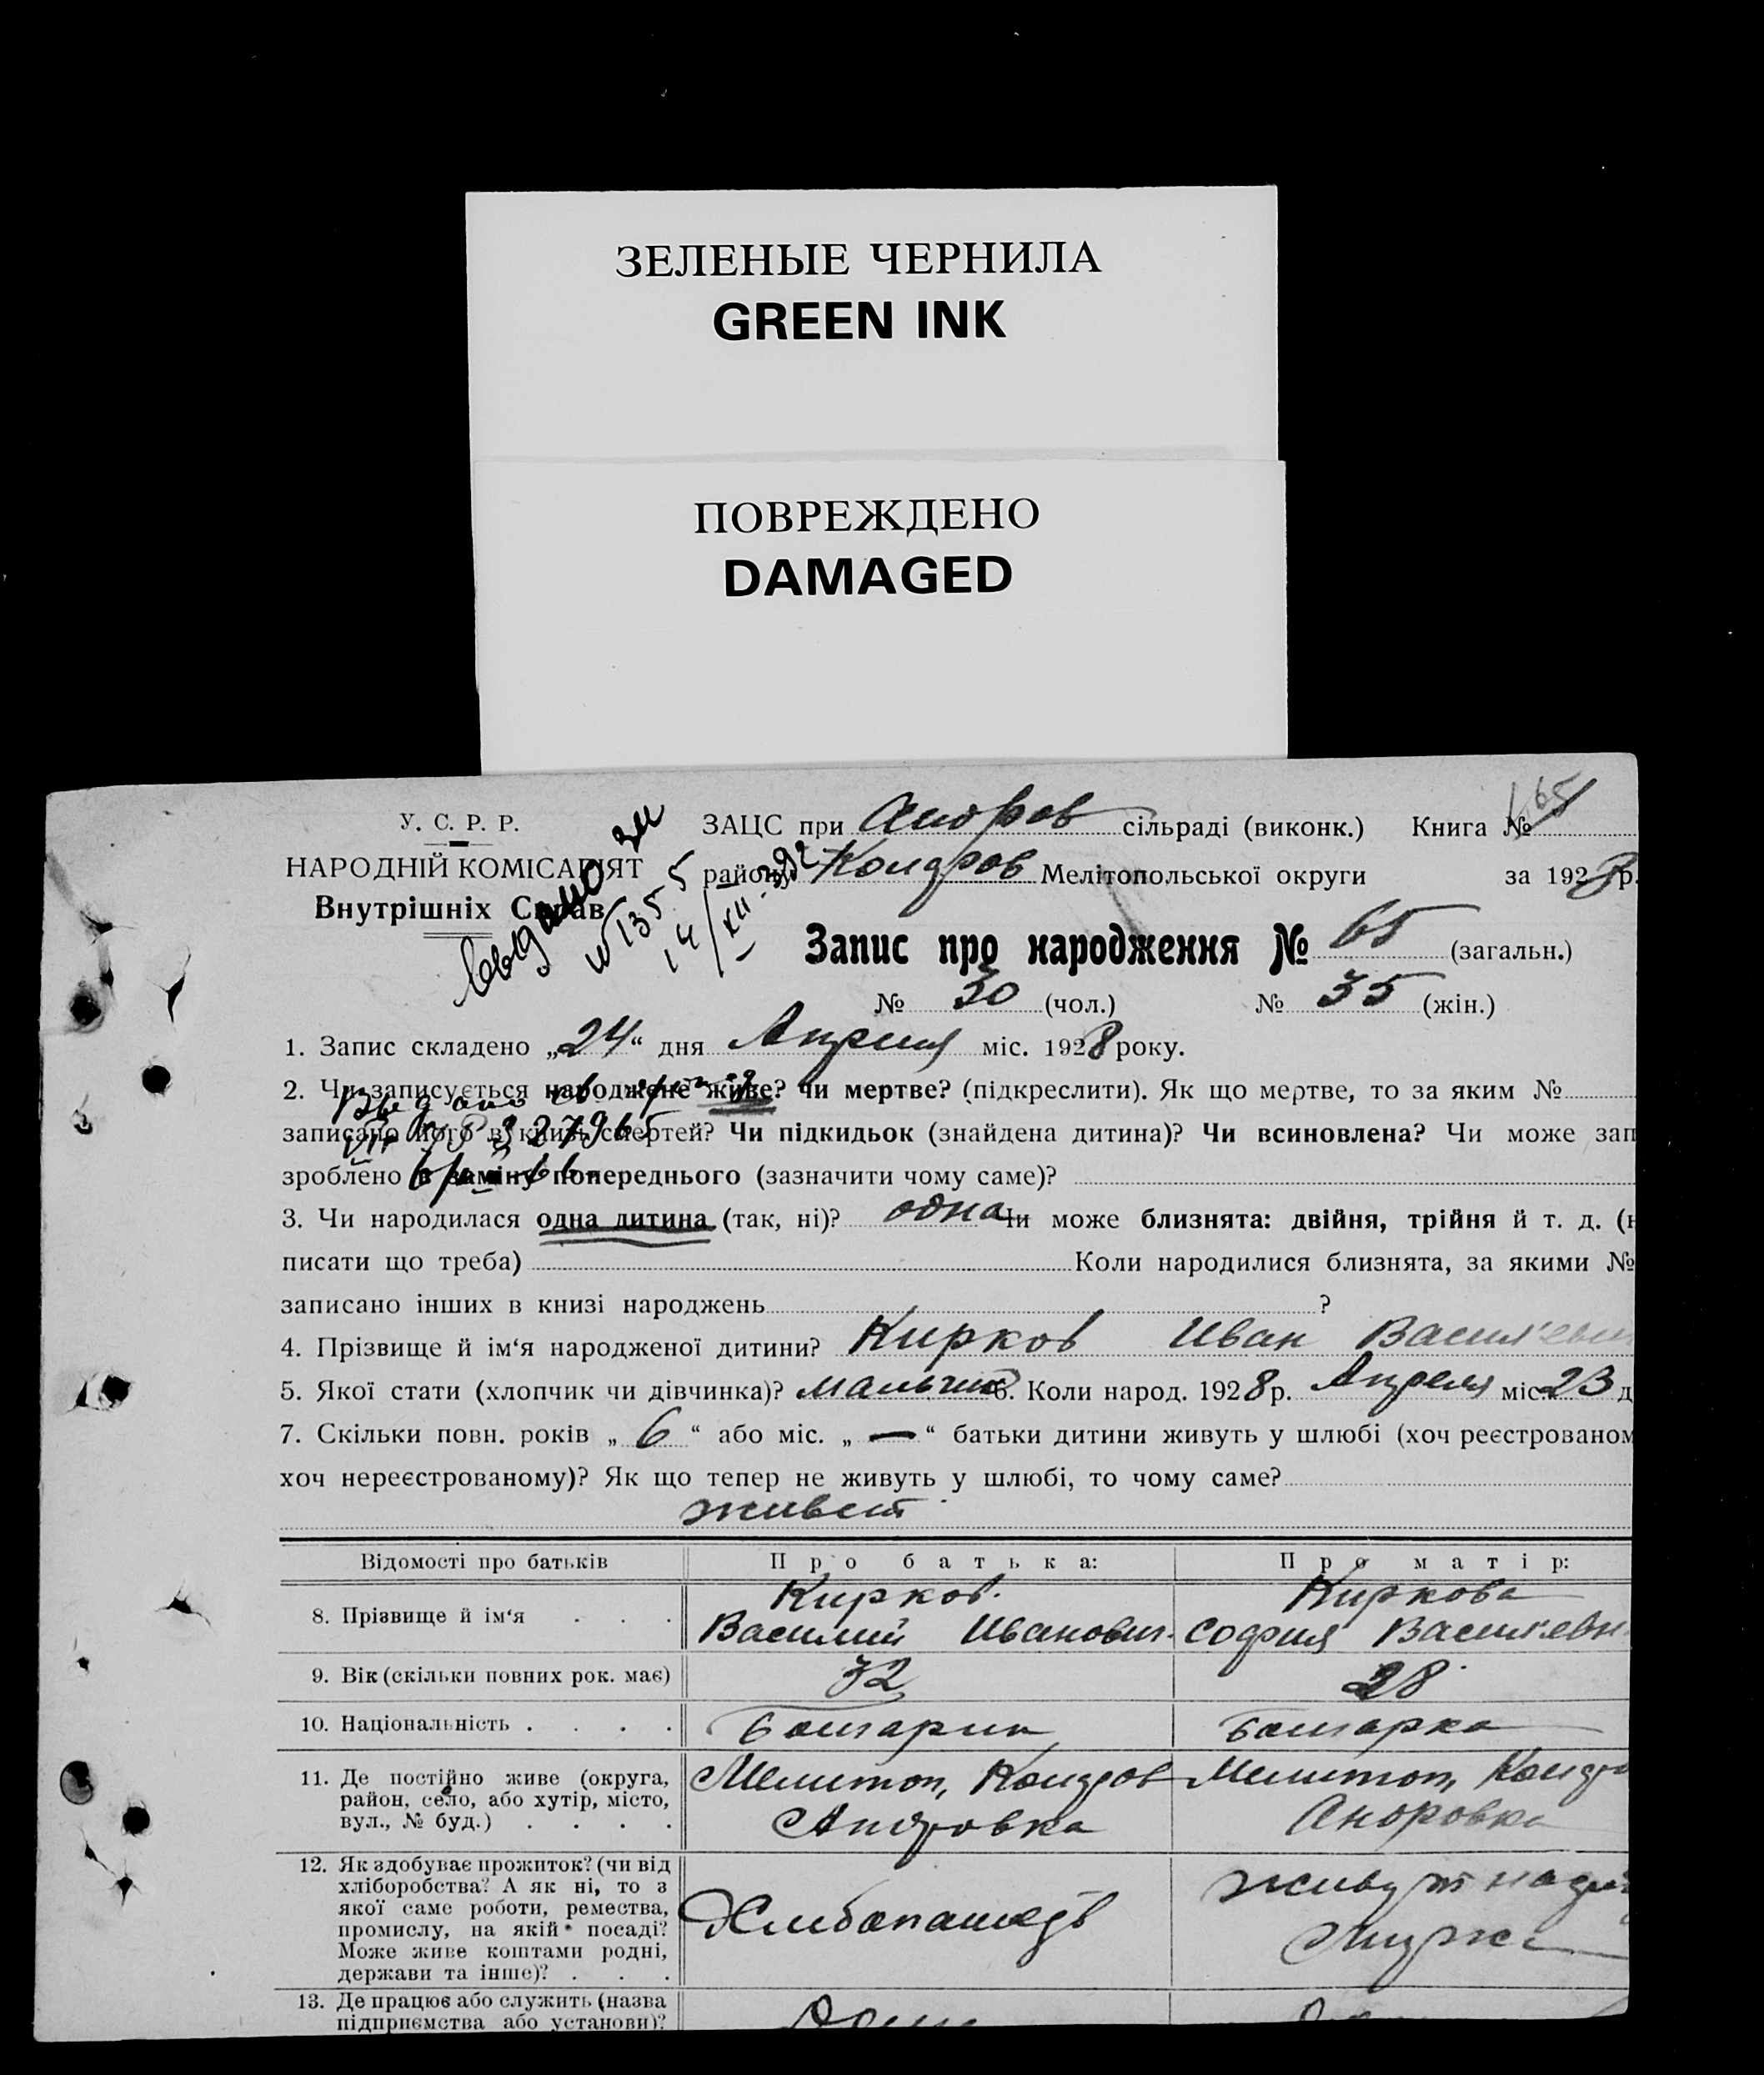 ЗЕЛЕНЫЕ ЧЕРНИЛА
GREEN INK
ПОВРЕЖДЕНО
DAMAGED
У. С. Р. Р.
НАРОДНІЙ КОМІСАРІЯТ
Внутрішніх Справ
Выдано
ЗАЦС при сільраді (виконк.) Книга № 65
району Кондров Мелітопольської округи за 1928 р.
Запис про народження № 65 (загальн.)
№ 30 (чол.) № 35 (жін.)
1. Запис складено „24“ дня Апреля міс. 1928 року.
2. Чи записується народжене живе? чи мертве? (підкреслити). Як що мертве, то за яким №
записано його в книзі смертей? Чи підкидьок (знайдена дитина)? Чи всиновлена? Чи може зап
зроблено в заміну попереднього (зазначити чому саме)?
3. Чи народилася одна дитина (так, ні)? одна Чи може близнята: двійня, трійня й т. д. (н
писати що треба) Коли народилися близнята, за якими №
записано інших в книзі народжень ?
4. Прізвище й ім‘я народженої дитини? Кирков Иван Васильеви
5. Якої стати (хлопчик чи дівчинка)? мальчик 6. Коли народ. 1928 р. Апреля міс. 23 д
7. Скільки повн. років „6“ або міс. „—“ батьки дитини живуть у шлюбі (хоч реєстрованом
хоч нереєстрованому)? Як що тепер не живуть у шлюбі, то чому саме?
живет
Відомості про батьків Про батька: Про матір:
8. Прізвище й ім‘я Кирков. Киркова
Василий Иванович София Васильевн
9. Вік (скільки повних рок. має) 32 28
10. Національність Болгарин Болгарка
11. Де постійно живе (округа, район, село, або хутір, місто, вул., № буд.) Мелитоп, Кондров Мелитоп, Кондро
Андровка Андровка
12. Як здобуває прожиток? (чи від
хліборобства? А як ні, то з
якої саме роботи, ремества,
промислу, на якій посаді?
Може живе коштами родні,
держави та інше)?
Хлибопашедь
мужа
13. Де працює або служить (назва
підприємства або установи)?